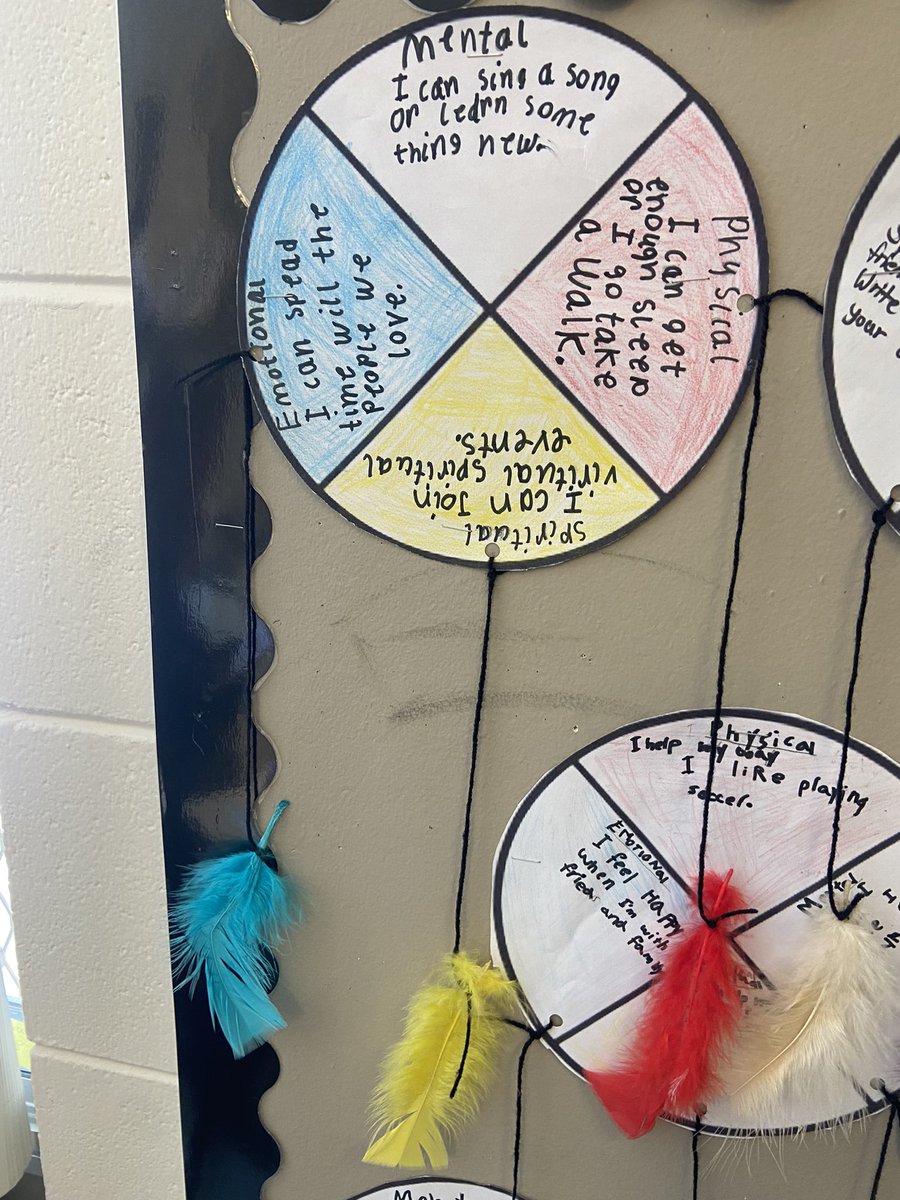 Mental
I can sing a song
or learn some
thing new.
Physical
I can get
enough sleep
or I go take
a walk.
Spiritual
I can Join
viritual spiritual
events.
Emotional
I can spead
time will the
people we
love.
Write
your
Physical
I help my
I like playing
soccer.
Emotional
I feel Happy
when I'm with
and family